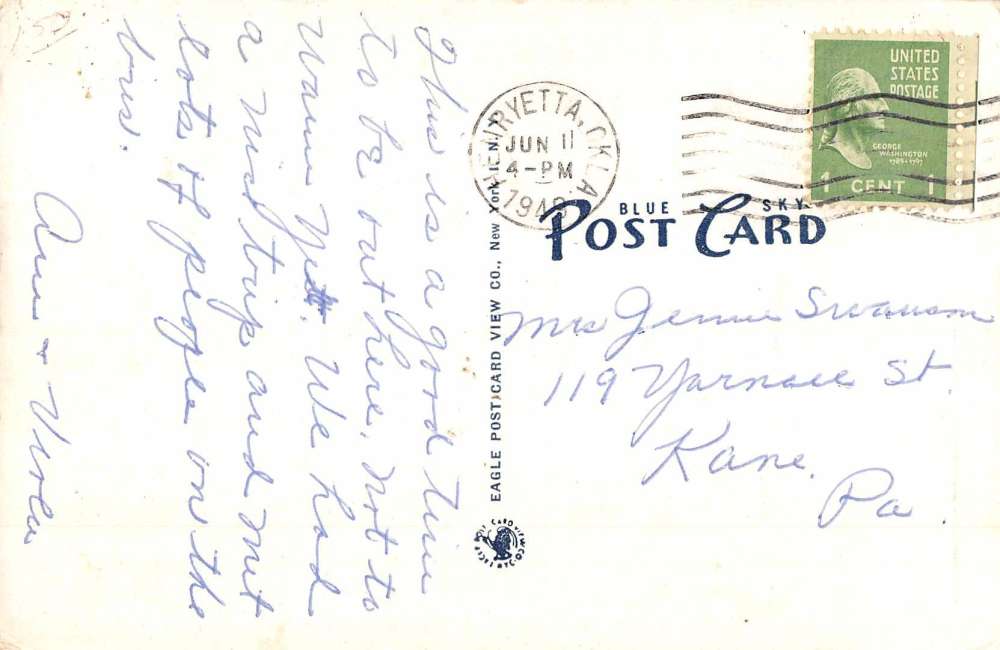 This is a good time
to be out here, not to
warm yet. We had
a nice trip and met
lots of people on the
bus.
Ann + Viola
HENRYETTA, OKLA.
JUN 11
4-PM
194
UNITED
STATES
POSTAGE
GEORGE
WASHINGTON
1789-1797
1 CENT 1
BLUE SKY
POST CARD
EAGLE POST CARD VIEW CO., New York 1, N.Y.
Mrs Jennie Swanson
119 Yarnall St.
Kane,
Pa.